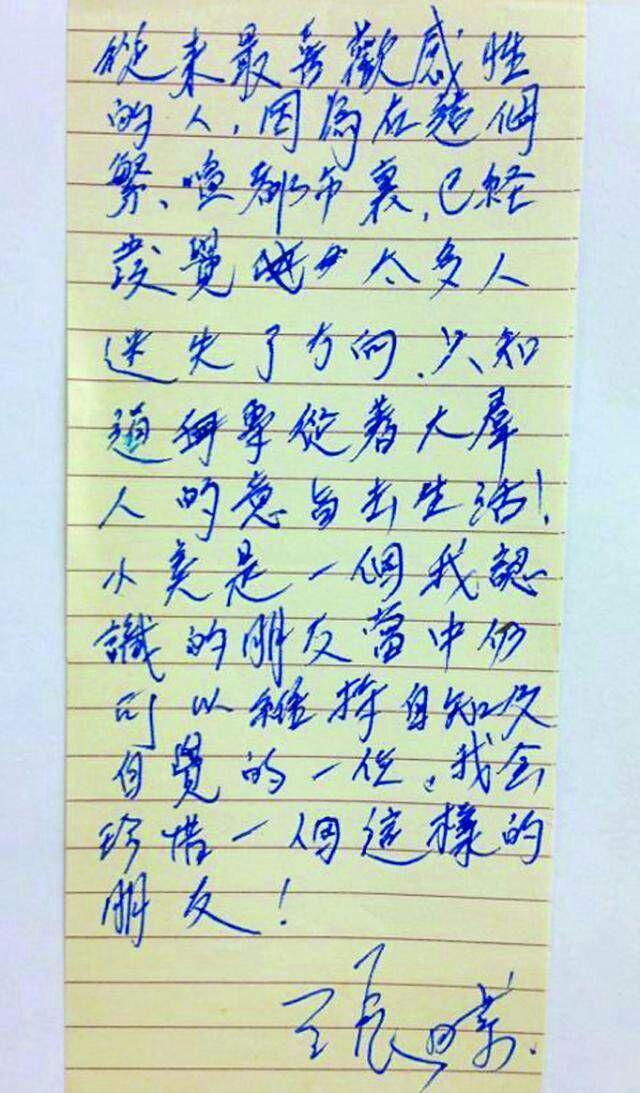 從來最喜歡感性
的人，因為在這個
繁喧都市裏，已經
發覺 太多人
迷失了方向，只知
道 從著大羣
人的意旨去生活！
小美是一個我認
識的朋友當中仍
可以維持自知及
自覺的一位，我会
珍惜一個這樣的
朋友！